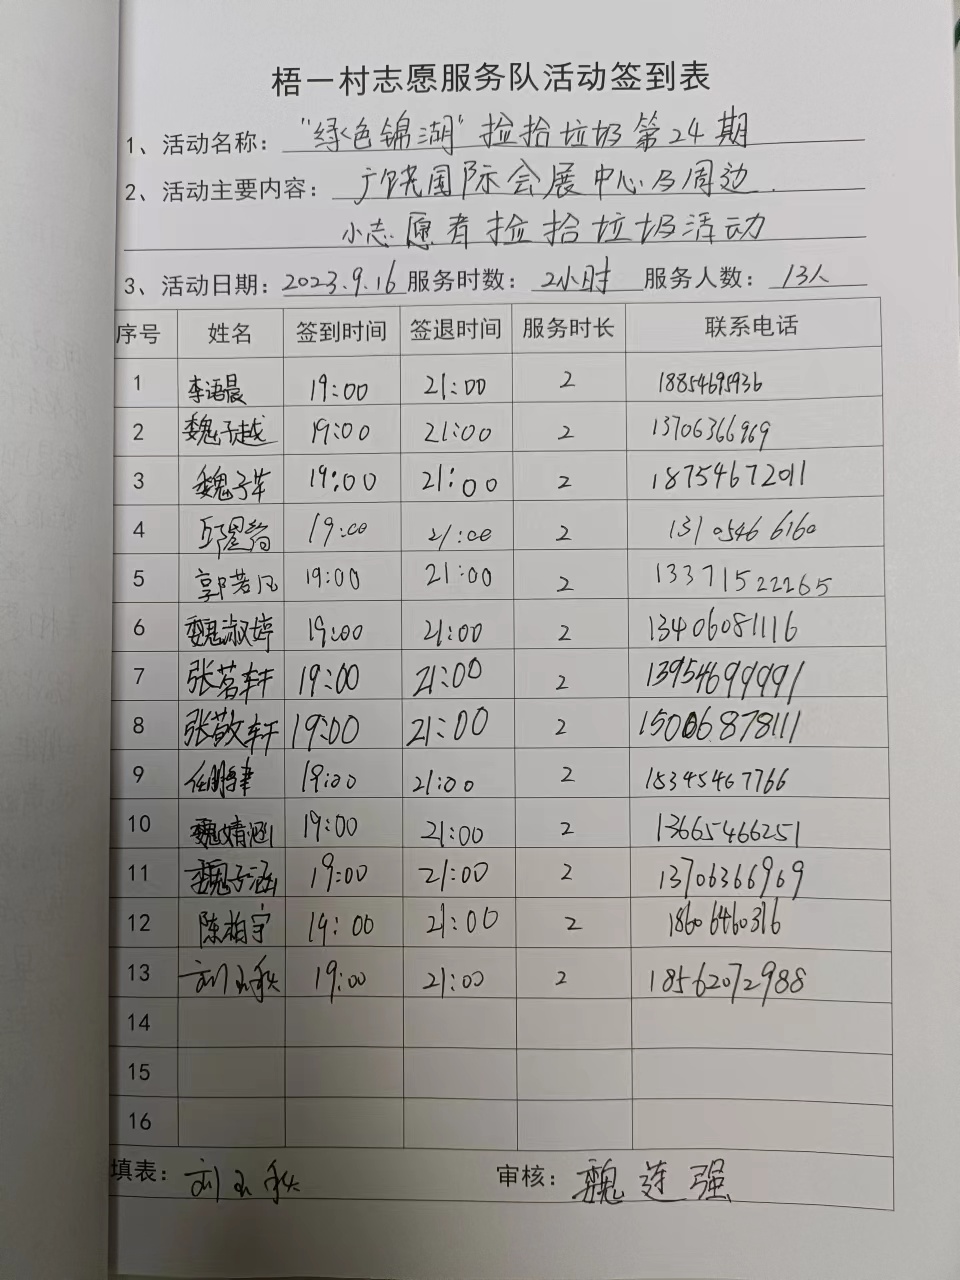 梧一村志愿服务队活动签到表
1、活动名称："绿色锦湖"捡拾垃圾第24期
2、活动主要内容：广饶国际会展中心及周边
小志愿者捡拾垃圾活动
3、活动日期：2023.9.16 服务时数：2小时 服务人数：13人
序号 姓名 签到时间 签退时间 服务时长 联系电话
1 李语晨 19:00 21:00 2 18854695936
2 魏子越 19:00 21:00 2 13706366969
3 魏子苹 19:00 21:00 2 18754672011
4 19:00 21:00 2 13105466160
5 郭若凡 19:00 21:00 2 13371522265
6 魏淑婷 19:00 21:00 2 13406081116
7 张茗轩 19:00 21:00 2 13954699991
8 张敬轩 19:00 21:00 2 15006878111
9 19:00 21:00 2 15345467766
10 魏婧涵 19:00 21:00 2 13665466251
11 魏子涵 19:00 21:00 2 13706366969
12 陈柏宇 19:00 21:00 2 18606460316
13 刘玉秋 19:00 21:00 2 18562072988
14
15
16
填表：刘玉秋 审核：魏莲强